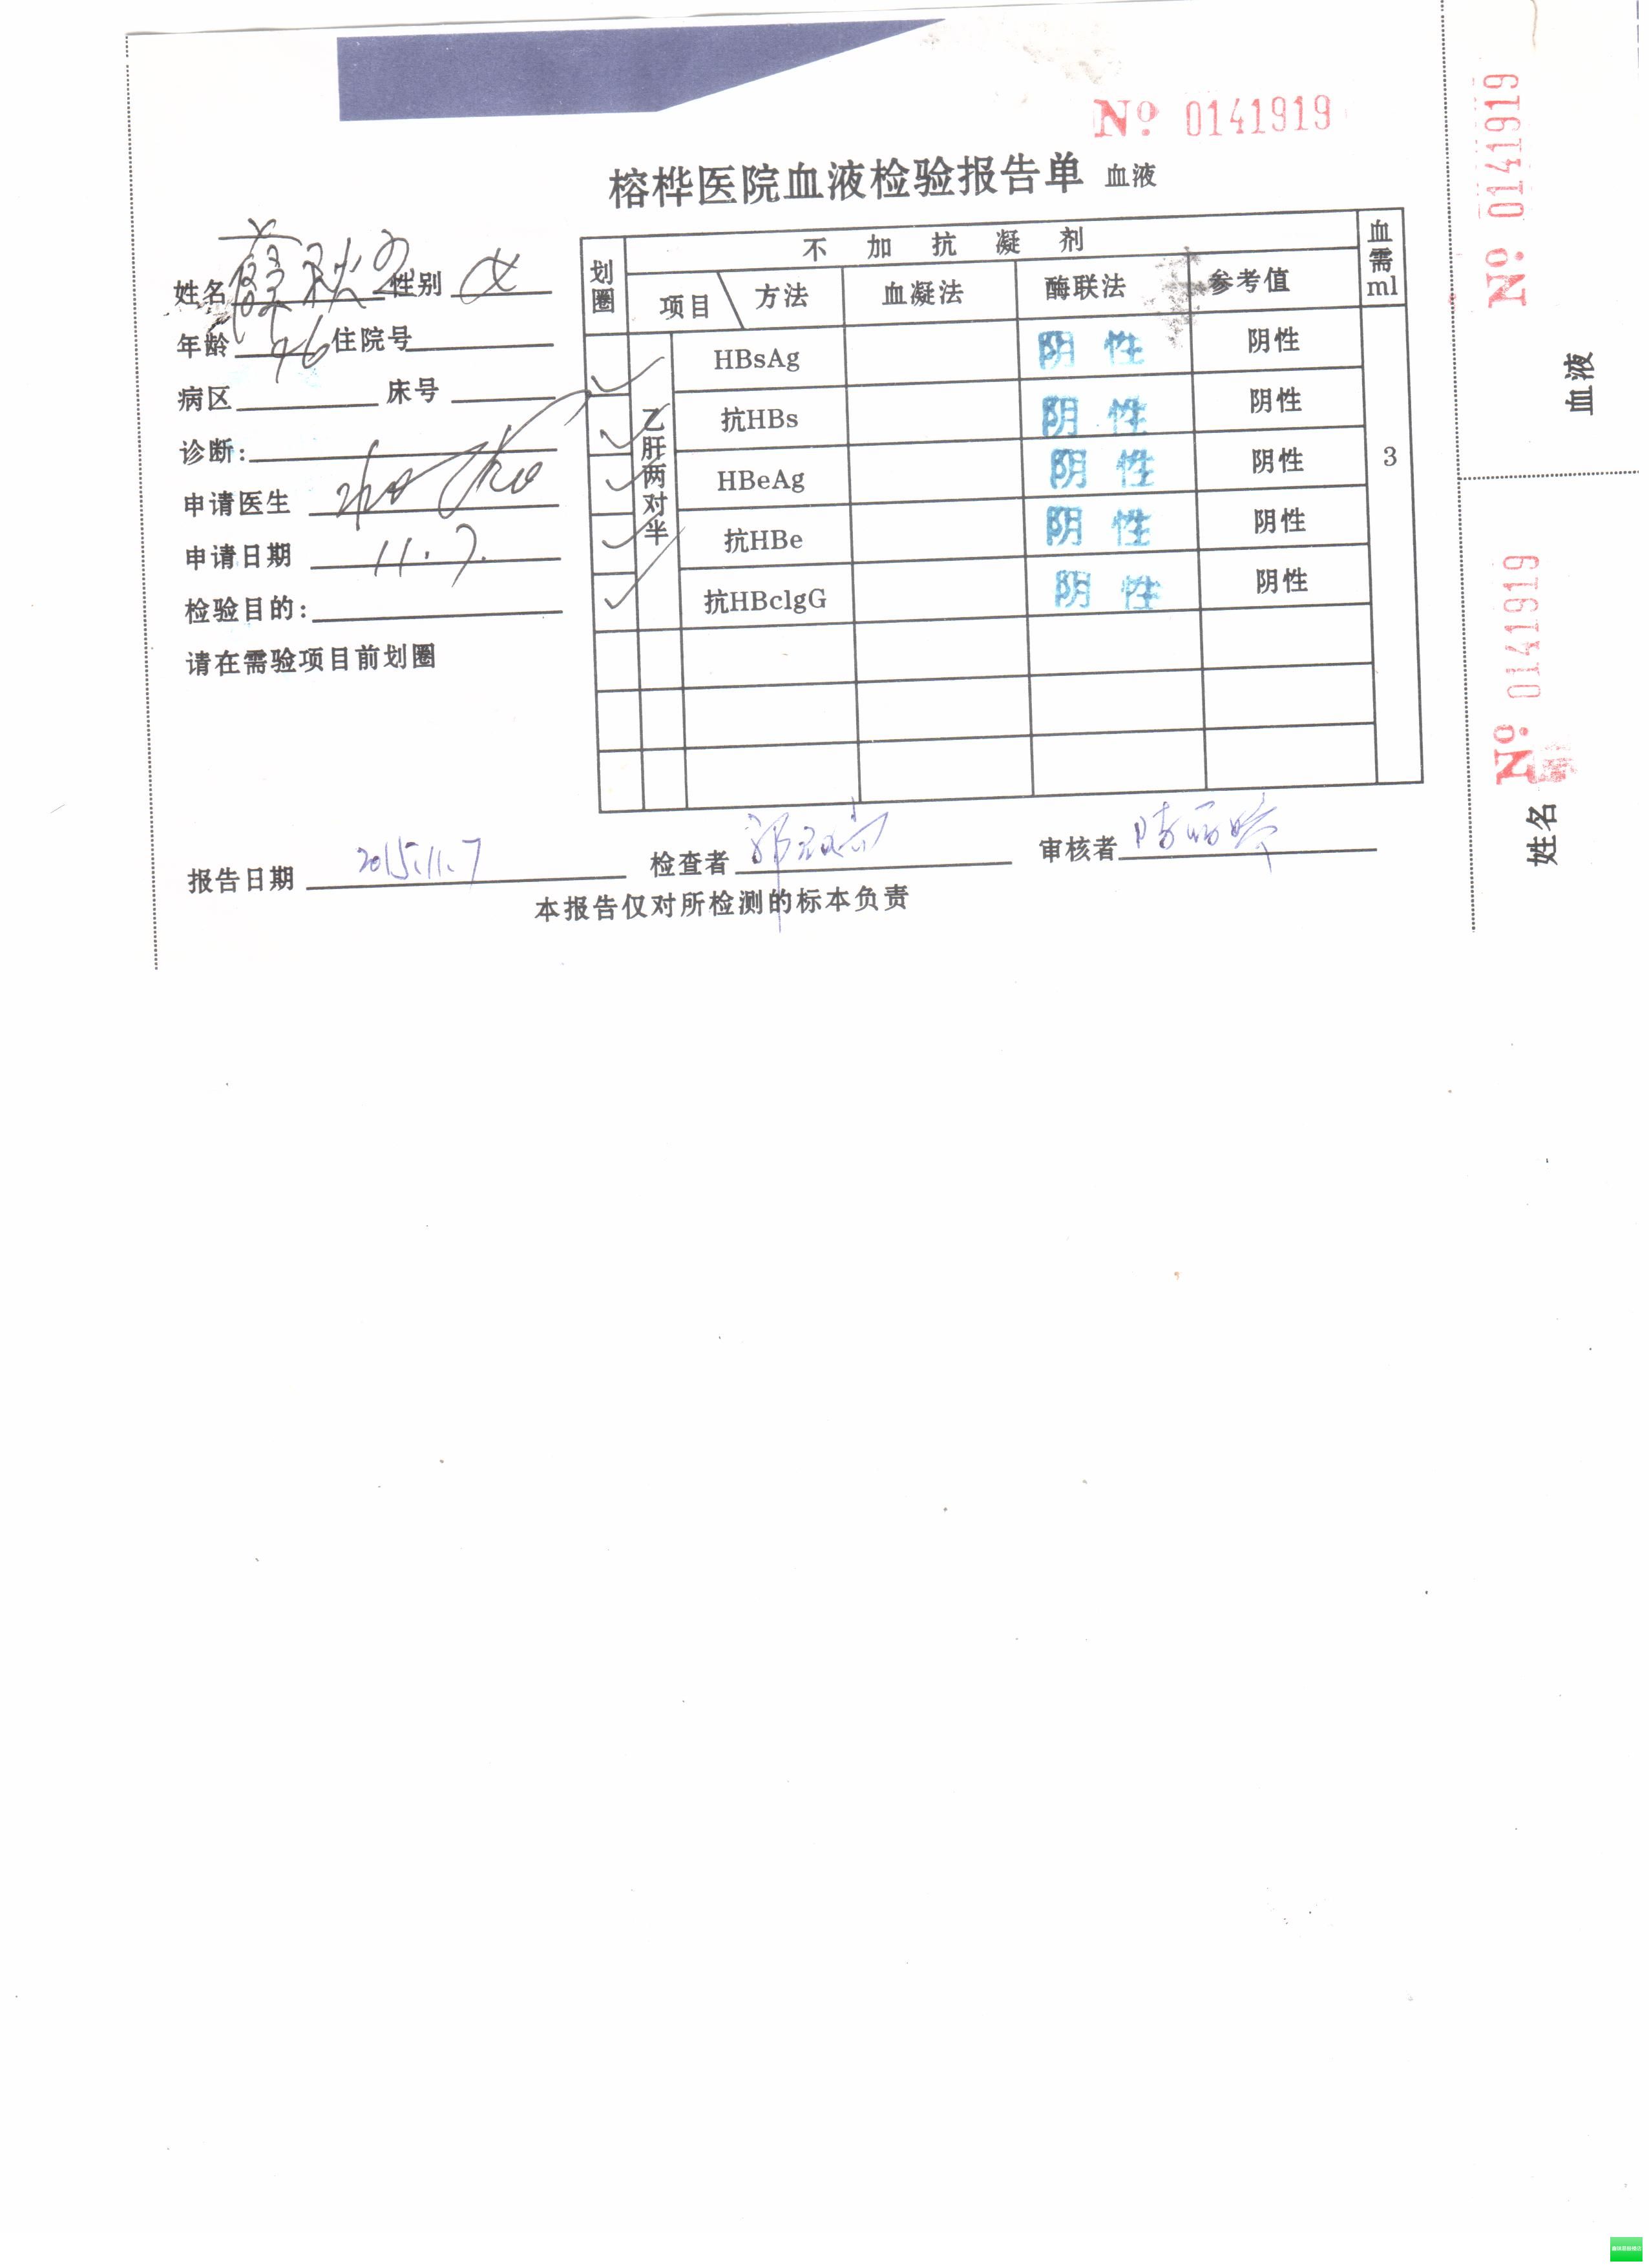 No. 0141919
榕桦医院血液检验报告单 血液
姓名 性别 女
年龄 46 住院号
病区 床号
诊断:
申请医生
申请日期 11.7.
检验目的:
请在需验项目前划圈
划圈 不加抗凝剂 血需ml
项目 方法 血凝法 酶联法 参考值
乙肝两对半
HBsAg 阴性 阴性
抗HBs 阴性 阴性
HBeAg 阴性 阴性 3
抗HBe 阴性 阴性
抗HBclgG 阴性 阴性
报告日期 2015.11.7 检查者 审核者
本报告仅对所检测的标本负责
No. 0141919
血液
No. 0141919
姓名